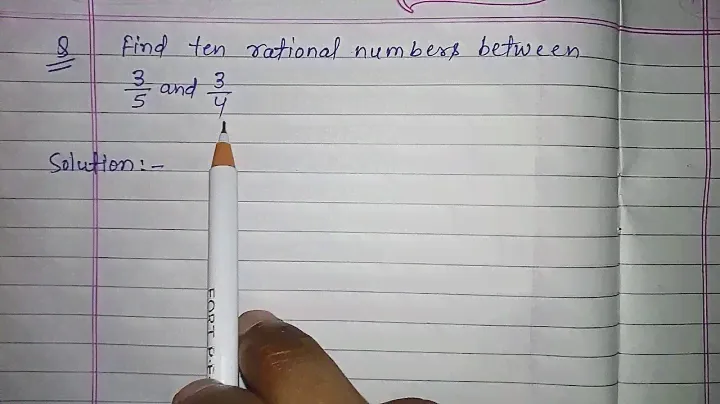 Q Find ten rational numbers between
3/5 and 3/4
Solution:-